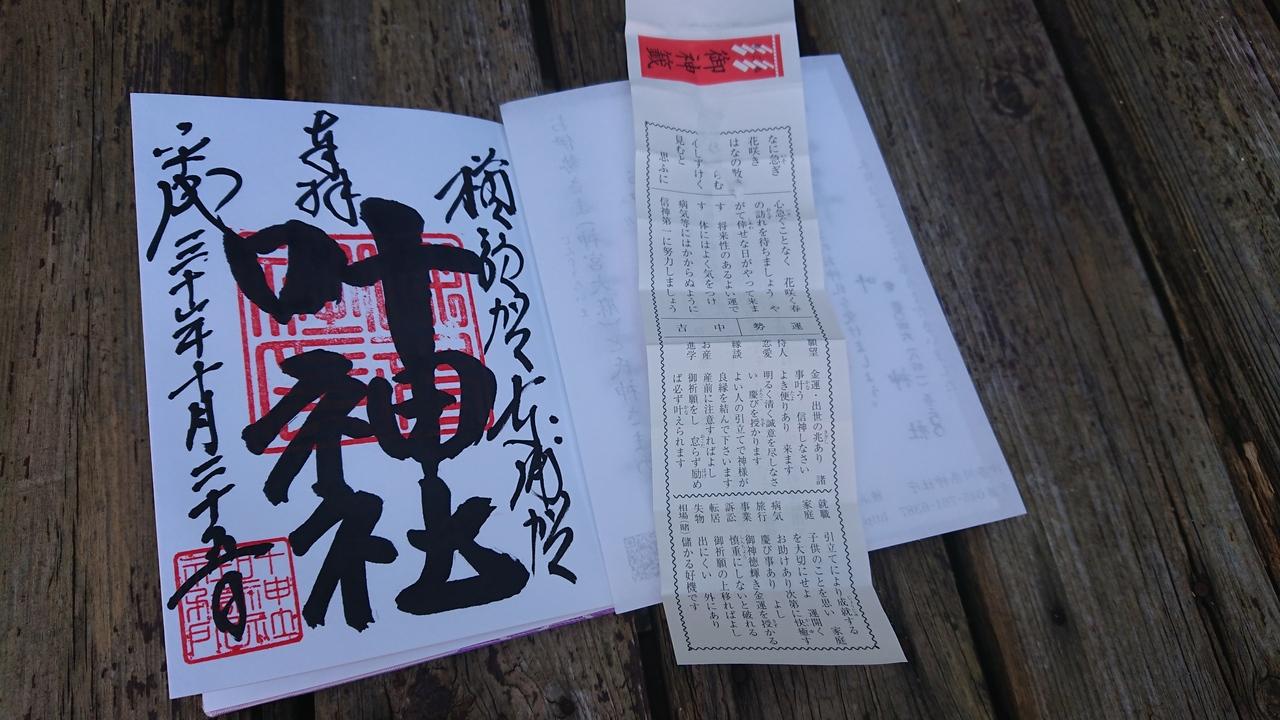 横須賀東浦賀
奉拝
叶神社
平成三十年十月二十五日
御神籤
なに急ぎ
花咲き
はなの数
らむ
しずけく
見むと
思ふに
心急ぐことなく 花咲く春
の訪れを待ちましょう や
がて倖せな日がやって来ま
す 将来性のあるよい運で
す 体にはよく気をつけ
病気等にはかからぬように
信神第一に努力しましょう
運勢 中吉
願望 金運・出世の兆あり 諸
事叶う 信神しなさい
待人 よき便りあり 来ます
恋愛 明るく清く誠意を尽しなさ
い 慶びを授かります
縁談 よい人の引立てで神様が
良縁を結んで下さいます
お産 産前に注意すればよし
進学 御祈願をし 怠らず励め
ば必ず叶えられます
就職 引立てにより成就する
家庭 子供のことを思い 家庭
を大切にせよ 運開く
病気 お助けあり次第に快癒す
旅行 慶び事あり よし
事業 御神徳輝き金運を授かる
訴訟 慎重にしないと破れる
転居 御祈願の上移ればよし
失物 出にくい 外にあり
相場(賭) 儲かる好機です